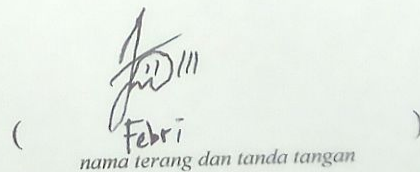 ( Febri )
nama terang dan tanda tangan